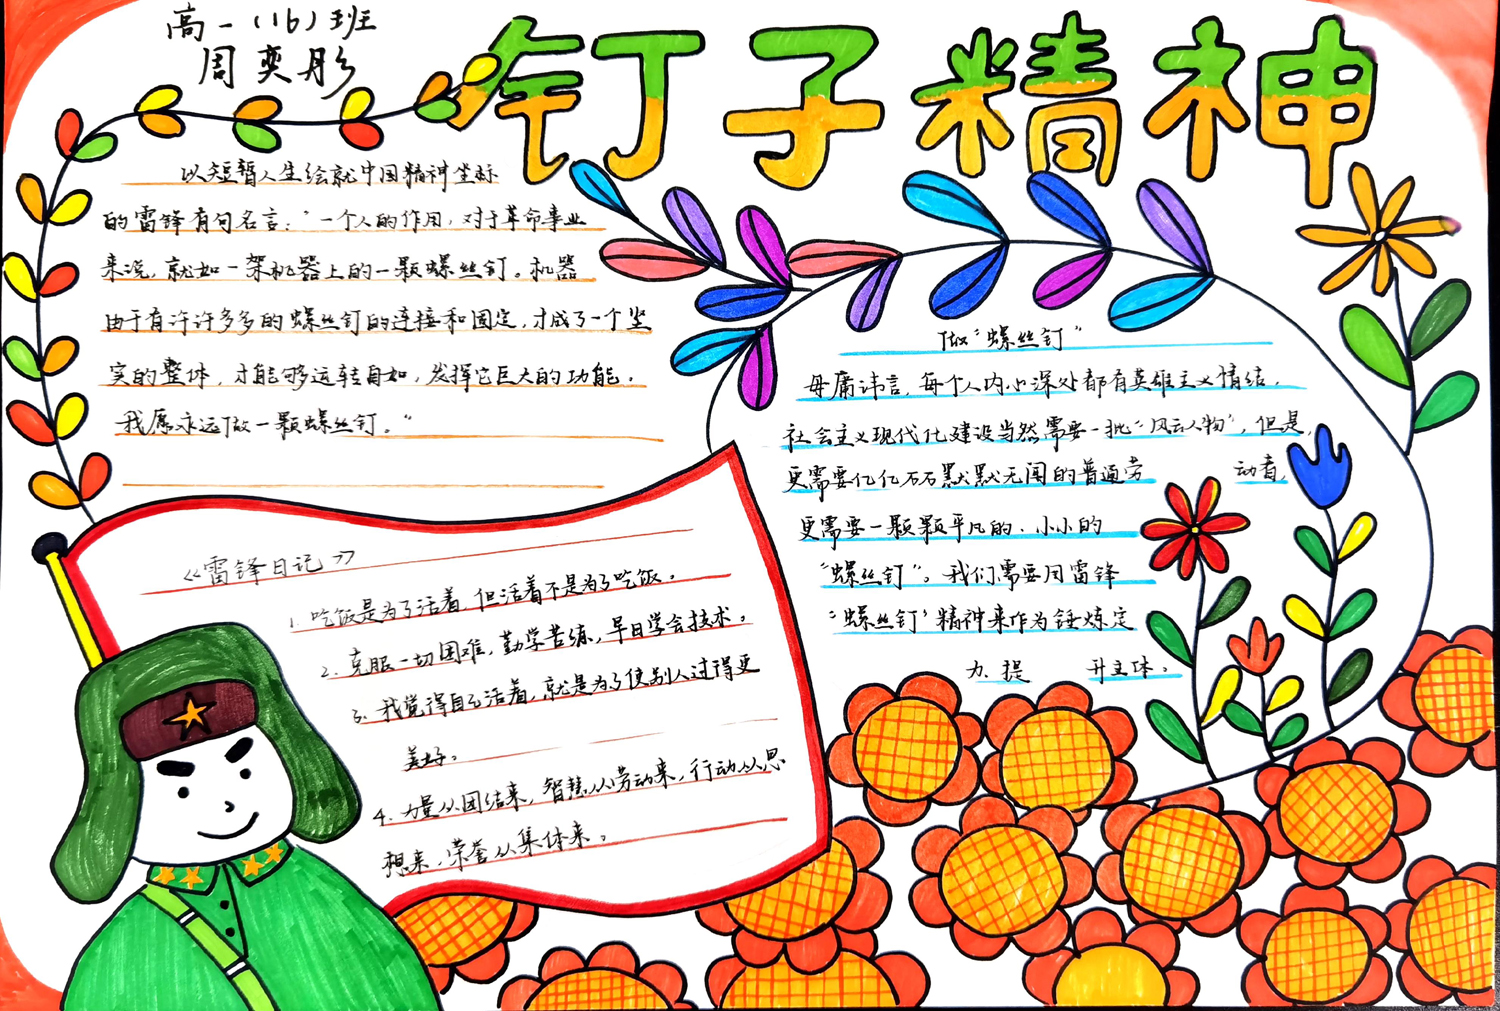 高一（16）班
周奕彤
钉子精神
以短暂人生绘就中国精神坐标
的雷锋有句名言：“一个人的作用，对于革命事业
来说，就如一架机器上的一颗螺丝钉。机器
由于有许许多多的螺丝钉的连接和固定，才成了一个坚
实的整体，才能够运转自如，发挥它巨大的功能，
我愿永远做一颗螺丝钉。”
做“螺丝钉”
毋庸讳言，每个人内心深处都有英雄主义情结，
社会主义现代化建设当然需要一批“风云人物”，但是，
更需要亿亿万万默默无闻的普通劳 动者，
更需要一颗颗平凡的、小小的
“螺丝钉”。我们需要用雷锋
“螺丝钉”精神来作为锤炼定
力、提 升主体。
《雷锋日记》
1. 吃饭是为了活着，但活着不是为了吃饭。
2. 克服一切困难，勤学苦练，早日学会技术。
3. 我觉得自己活着，就是为了使别人过得更
美好。
4. 力量从团结来，智慧从劳动来，行动从思
想来，荣誉从集体来。